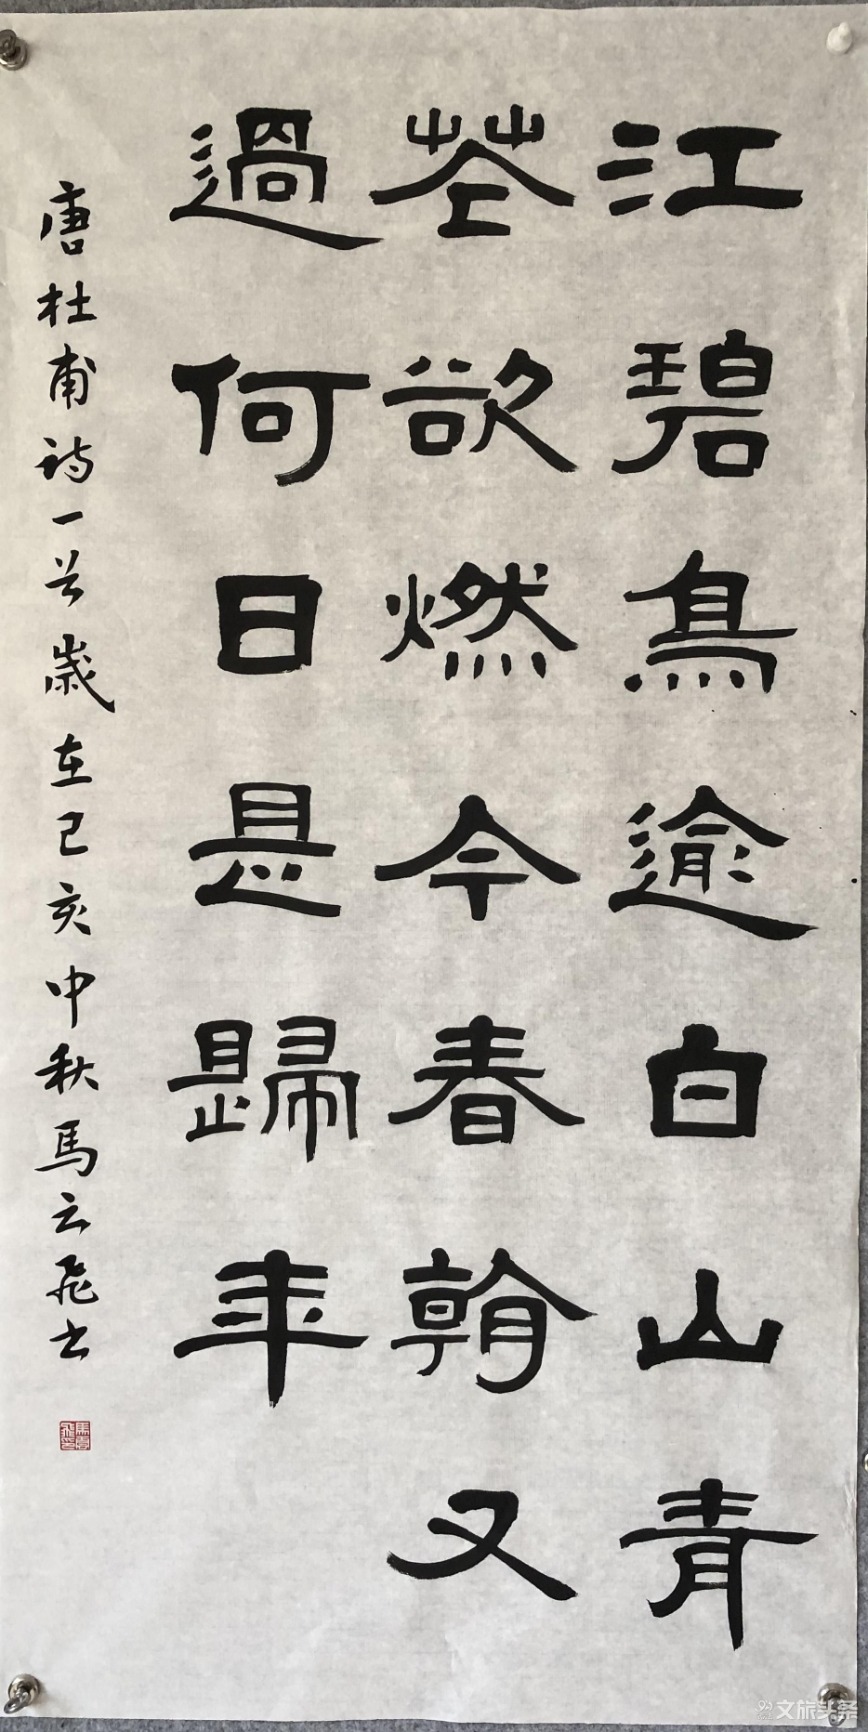 江碧鳥逾白山青
花欲燃今春看又
過何日是歸年
唐杜甫诗一首歲在己亥中秋馬云飛书
文旅头条